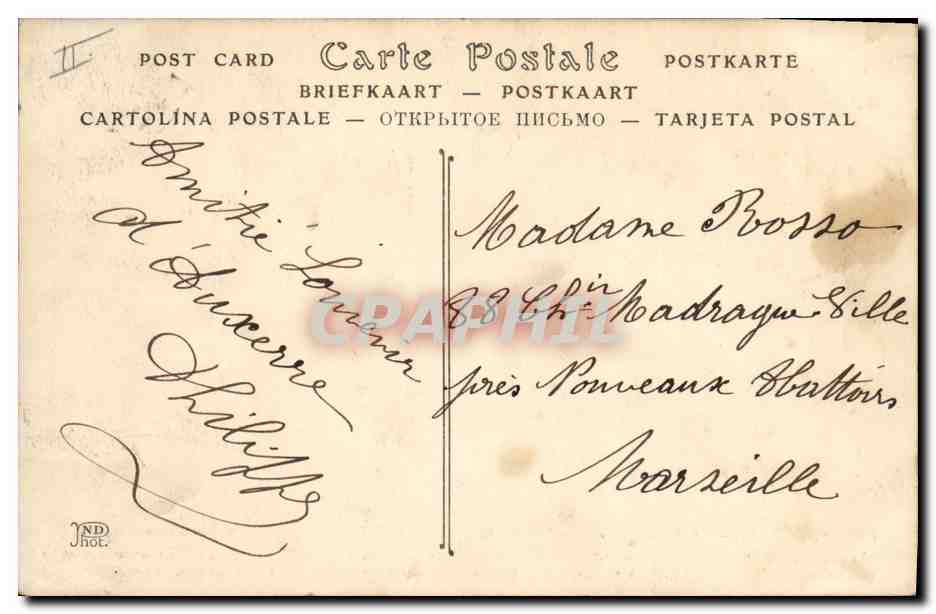 II.
POST CARD Carte Postale POSTKARTE
BRIEFKAART — POSTKAART
CARTOLINA POSTALE — ОТКРЫТОЕ ПИСЬМО — TARJETA POSTAL
Amitié Souvenir
d'Auxerre
Philippe
Madame Rosso
88 Chin Madrague Ville
près Nouveaux Abattoirs
Marseille
CPAPHIL
ND
Phot.